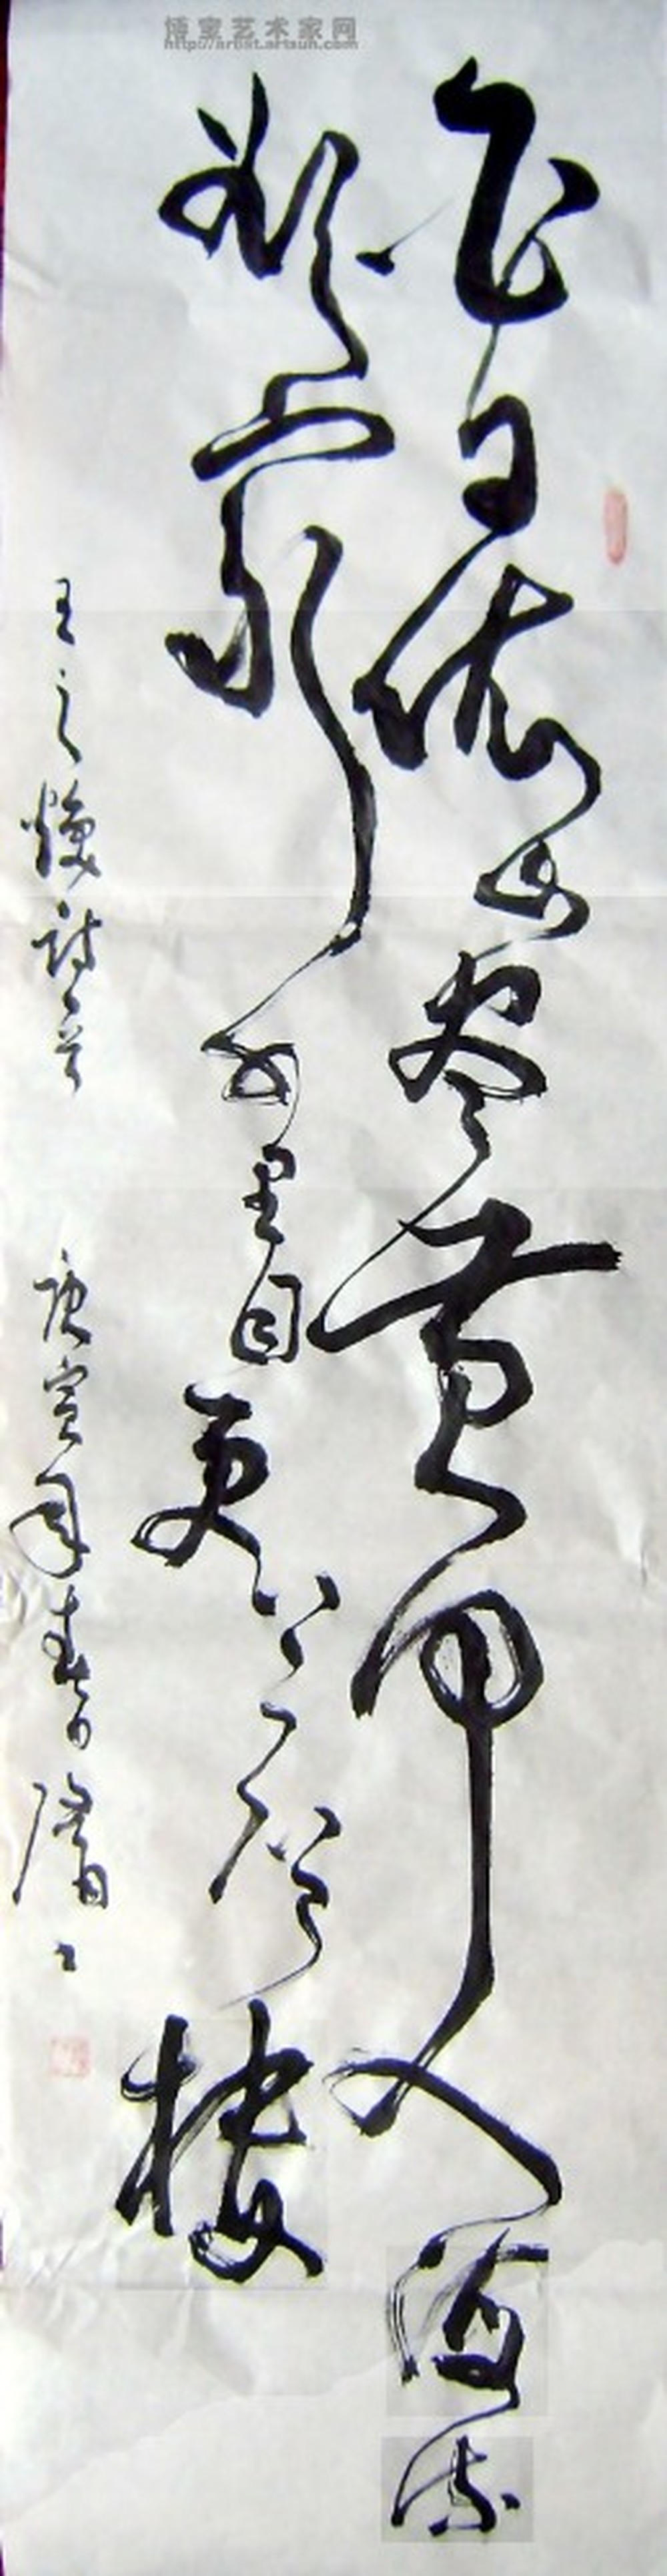 博宝艺术家网
http://artist.artxun.com
白日依山尽黄河入海流
欲穷千里目更上一层楼
王之焕诗意
庚寅年春月